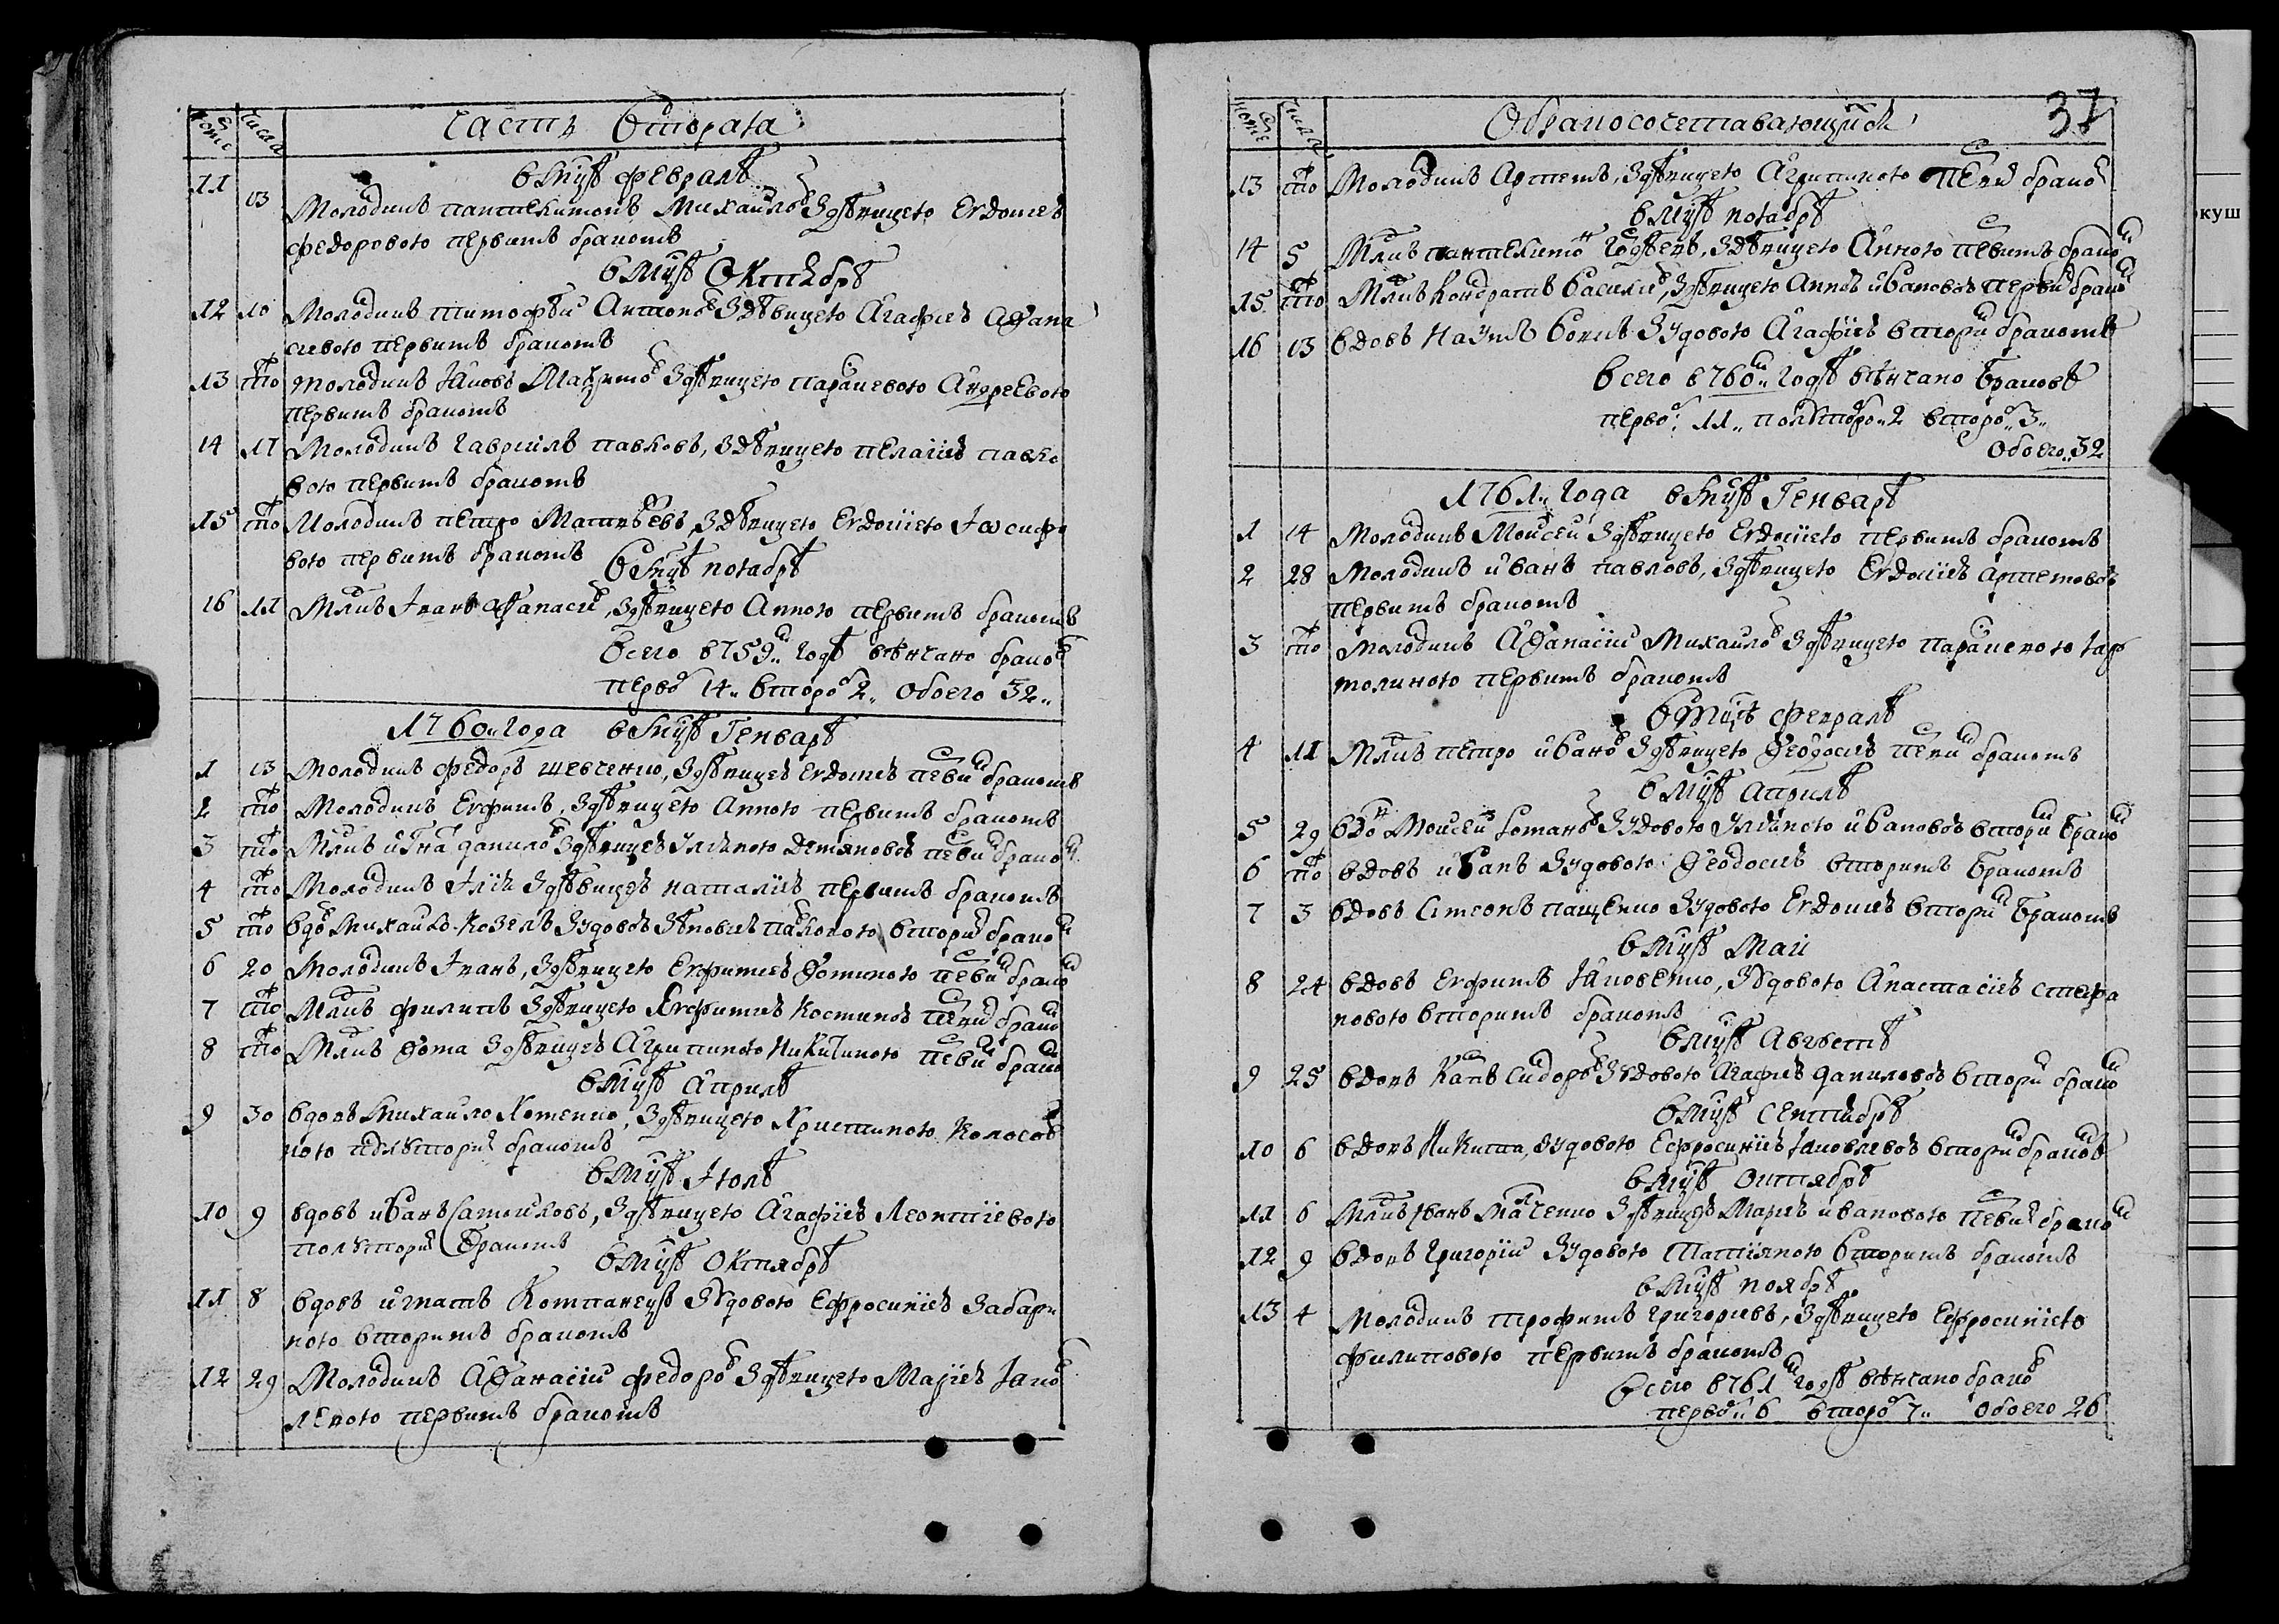 номе числа Часть Вторая
в мцѣ февралѣ
11 13 Молодикъ пантелимонъ Михайло з дѣвицею Евдокиею
федоровою первимъ бракомъ
в мцѣ Октябрѣ
12 10 Молодикъ тимофѣй Антоно з дѣвицею Агафіею Афана
сиевою первимъ бракомъ
13 то молодикъ Іаковъ Максимо з дѣвицею параскевою Андреевою
первимъ бракомъ
14 17 Молодикъ гавріилъ павловъ, з дѣвицею пелагіею павло
вою первимъ бракомъ
15 то Молодикъ петро Матвѣевъ, з дѣвицею Евдокіею Іосифо
вою первимъ бракомъ
в мцѣ ноябрѣ
16 11 Млкъ Іванъ Афанасій, з дѣвицею Анною первимъ бракомъ
Всего в 759 годѣ вѣнчано брако
перво 14 второ 2 обоего 32
1760 года в мцѣ Генварѣ
1 13 Молодикъ федоръ шевченко, з дѣвицею Евдокиею первим бракомъ
2 то Молодикъ Ефимъ, з дѣвицею Анною первимъ бракомъ
3 то Млкъ игна данило з дѣвицею Улияною Демяновою первим брако
4 то Молодикъ Іліи з дѣвицею наталіею первимъ бракомъ
5 то вдо михайло козелъ з удовою Зѣновиею втори брако
6 20 Молодикъ Іванъ, з дѣвицею Евфимиею Фоминою первим брако
7 то Млкъ филипъ з дѣвицею Евфимиею Костиною первим брако
8 то Млкъ Фома з дѣвицею Агрипиною Никитиною первим брако
в мцѣ Априлѣ
9 30 вдовъ михайло Хоменко, з дѣвицею Христиною Колосов
ною полвтори бракомъ
в мцѣ Іюлѣ
10 9 вдовъ иванъ Самойловъ, з дѣвицею Агафіею Леонтіевою
полвтори бракомъ
в мцѣ Октябрѣ
11 8 вдовъ игнатъ Компанецъ з удовою Ефросиніею Забари
ною вторимъ бракомъ
12 29 Молодикъ Афанасіи федоро з дѣвицею Маріею Іаков
левою первимъ бракомъ
номе числа О бракосочетавающихся 37
13 то Молодикъ Артемъ, з дѣвицею Агрипиною первим брако
в мцѣ ноябрѣ
14 5 Млкъ пантелимо, з дѣвицею Анною первимъ брако
15 то Млкъ Кондратъ Василие, з дѣвицею Анною ивановою первим брако
16 13 вдовъ Наумъ з удовою Агафіею втори бракомъ
Всего в 760 годѣ вѣнчано браковъ
перво 11 полвторо 2 второ 3
обоего 32
1761 года в мцѣ Генварѣ
1 14 Молодикъ Моисей з дѣвицею Евдокіею первимъ бракомъ
2 28 Молодикъ иванъ павловъ, з дѣвицею Евдокіею Артемовою
первимъ бракомъ
3 то Молодикъ Афанасіи Михайло з дѣвицею параскевою
первимъ бракомъ
в мцѣ февралѣ
4 11 Млкъ петро ивано з дѣвицею Феодосиею первим бракомъ
в мцѣ Априлѣ
5 29 вдо Моисей Романо з удовою Улияною ивановою втори брако
6 то вдовъ иванъ з удовою Феодосиею вторимъ бракомъ
7 3 вдовъ Симеонъ пащенко з удовою Евдокиею втори бракомъ
в мцѣ Маіи
8 24 вдовъ Ефимъ Іаковенко, з удовою Анастасіею Стефа
новою вторимъ бракомъ
в мцѣ Августѣ
9 25 вдовъ Сидоро з удовою Агафиею Даниловою втори брако
в мцѣ Септябрѣ
10 6 вдовъ Никита, з удовою Ефросиніею Іаковлевою втори бракомъ
в мцѣ Октябрѣ
11 6 Млкъ Іванъ з дѣвицею Мариею ивановою первим брако
12 9 вдовъ Григоріи з удовою Татіяною вторимъ бракомъ
в мцѣ ноябрѣ
13 4 Молодикъ трофимъ Григориевъ, з дѣвицею Ефросиніею
филиповою первимъ бракомъ
Всего в 761 годѣ вѣнчано брако
перво 6 второ 7 обоего 26
куш